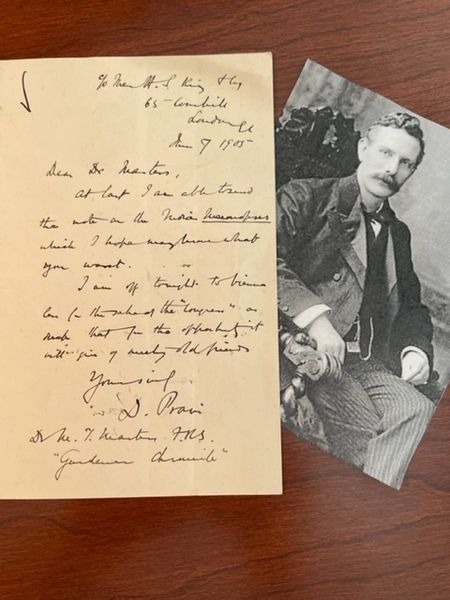 c/o Messrs H. S. King & Co
65 Cornhill
London EC
June 7 1905
Dear Dr Masters,
At last I am able to send
the note on the Indian Meconopses
which I hope may be what
you want.
I am off tonight to Vienna
less for the sake of the "Congress" as
such than for the opportunity it
will give of meeting old friends
Yours sincly
D. Prain
Dr M. T. Masters F.R.S.
"Gardeners Chronicle"